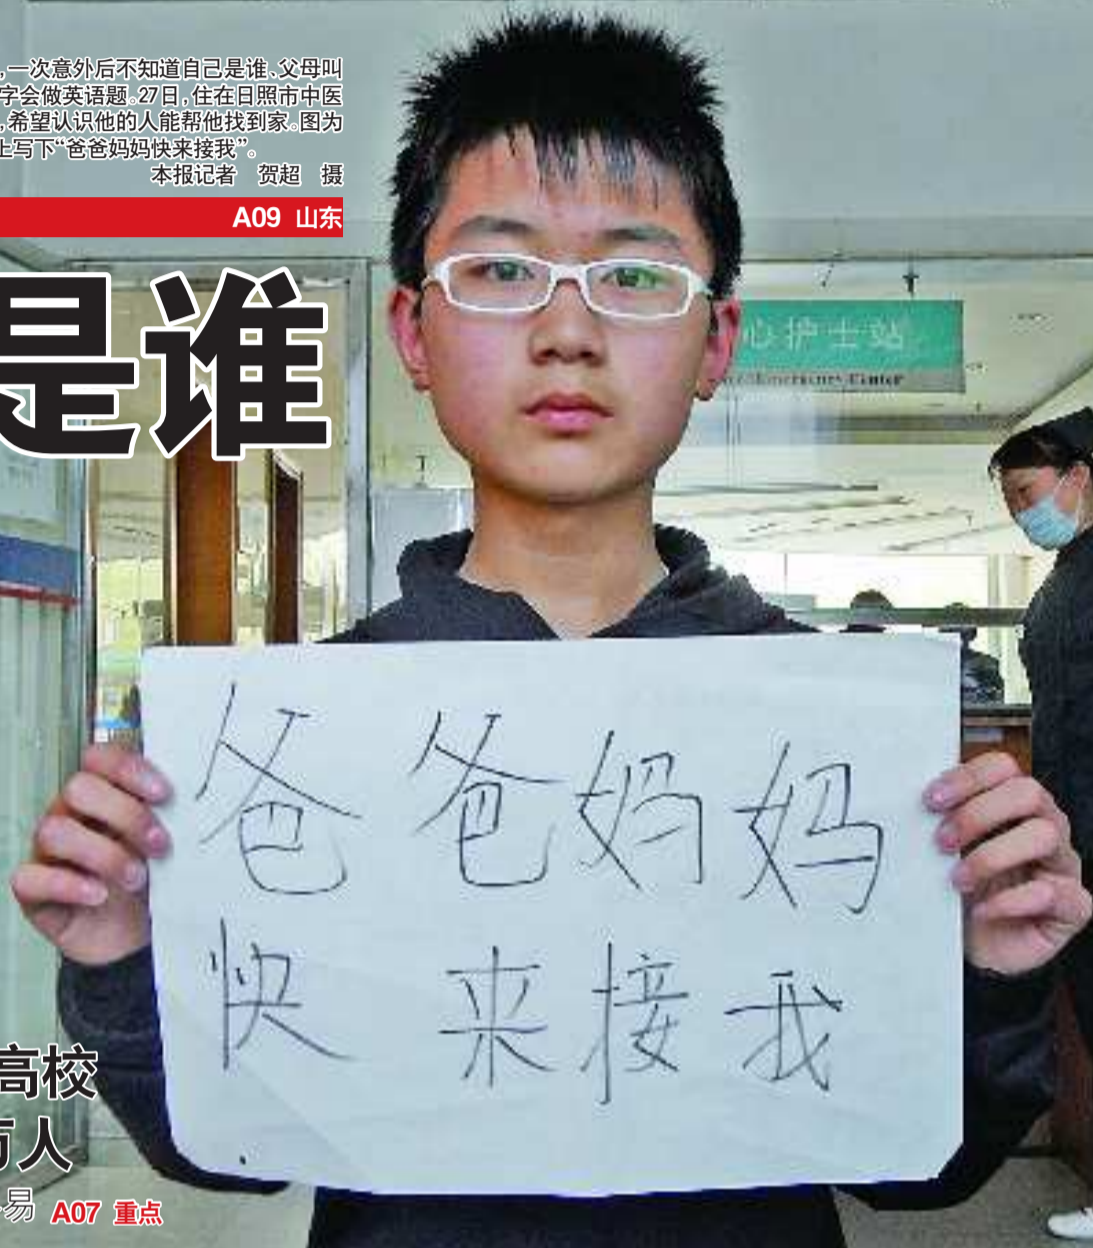 ,一次意外后不知道自己是谁、父母叫
字会做英语题。27日,住在日照市中医
,希望认识他的人能帮他找到家。图为
上写下“爸爸妈妈快来接我”。
本报记者 贺超 摄
A09 山东
是谁
心护士站
Emergency Center
爸爸妈妈
快来接我
高校
万人
易 A07 重点